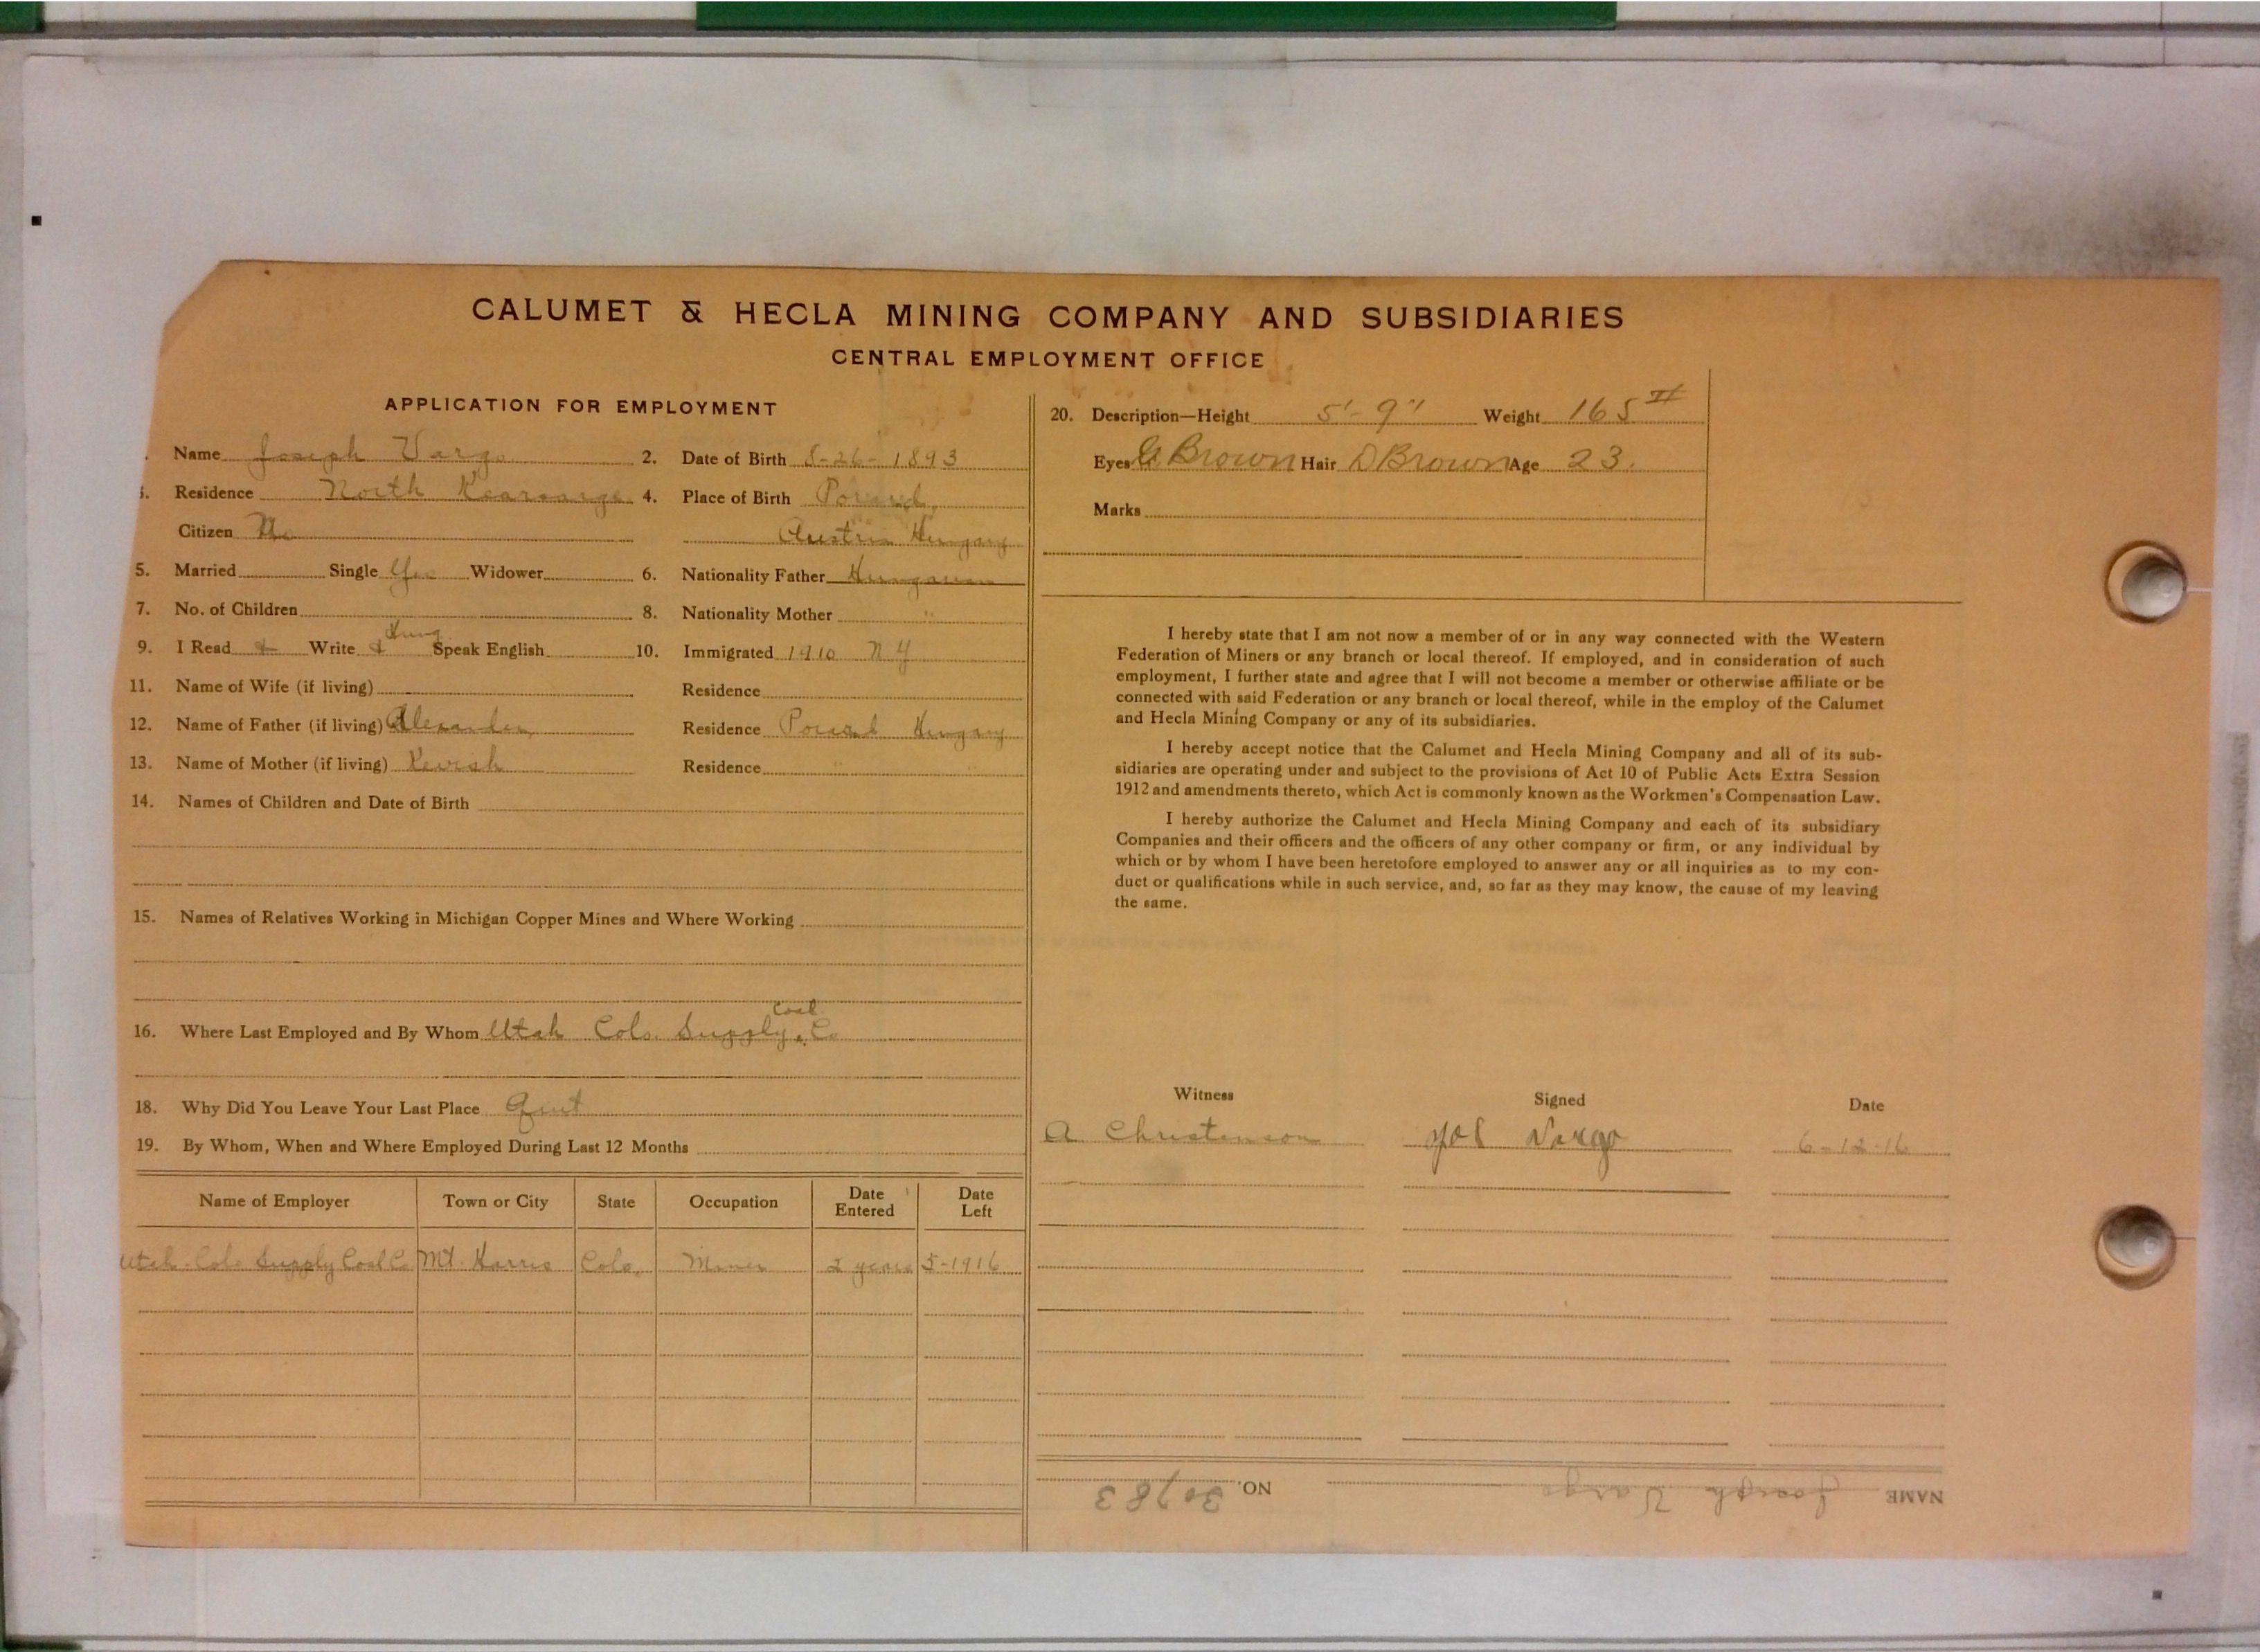 CALUMET & HECLA MINING COMPANY AND SUBSIDIARIES
CENTRAL EMPLOYMENT OFFICE
APPLICATION FOR EMPLOYMENT
Name Joseph Vargo 2. Date of Birth 8-26-1893
3. Residence North Kearsarge 4. Place of Birth
Citizen No Austria Hungary
5. Married Single Yes Widower 6. Nationality Father Hungarian
7. No. of Children 8. Nationality Mother "
9. I Read & Write & Hung. Speak English 10. Immigrated 1910 N Y
11. Name of Wife (if living) Residence
12. Name of Father (if living) Alexander Residence Hungary
13. Name of Mother (if living) Residence " "
14. Names of Children and Date of Birth
15. Names of Relatives Working in Michigan Copper Mines and Where Working
16. Where Last Employed and By Whom Utah Colo. Supply Coal Co
18. Why Did You Leave Your Last Place Quit
19. By Whom, When and Where Employed During Last 12 Months
Name of Employer Town or City State Occupation Date Entered Date Left
Utah-Colo Supply Coal Co Mt. Harris Colo. Miner 2 years 5-1916
20. Description—Height 5'-9" Weight 165 #
Eyes Brown Hair D Brown Age 23.
Marks
I hereby state that I am not now a member of or in any way connected with the Western
Federation of Miners or any branch or local thereof. If employed, and in consideration of such
employment, I further state and agree that I will not become a member or otherwise affiliate or be
connected with said Federation or any branch or local thereof, while in the employ of the Calumet
and Hecla Mining Company or any of its subsidiaries.
I hereby accept notice that the Calumet and Hecla Mining Company and all of its sub-
sidiaries are operating under and subject to the provisions of Act 10 of Public Acts Extra Session
1912 and amendments thereto, which Act is commonly known as the Workmen's Compensation Law.
I hereby authorize the Calumet and Hecla Mining Company and each of its subsidiary
Companies and their officers and the officers of any other company or firm, or any individual by
which or by whom I have been heretofore employed to answer any or all inquiries as to my con-
duct or qualifications while in such service, and, so far as they may know, the cause of my leaving
the same.
Witness Signed Date
A Christenson Vargo 6-12-16
NAME Joseph Vargo NO. 30783